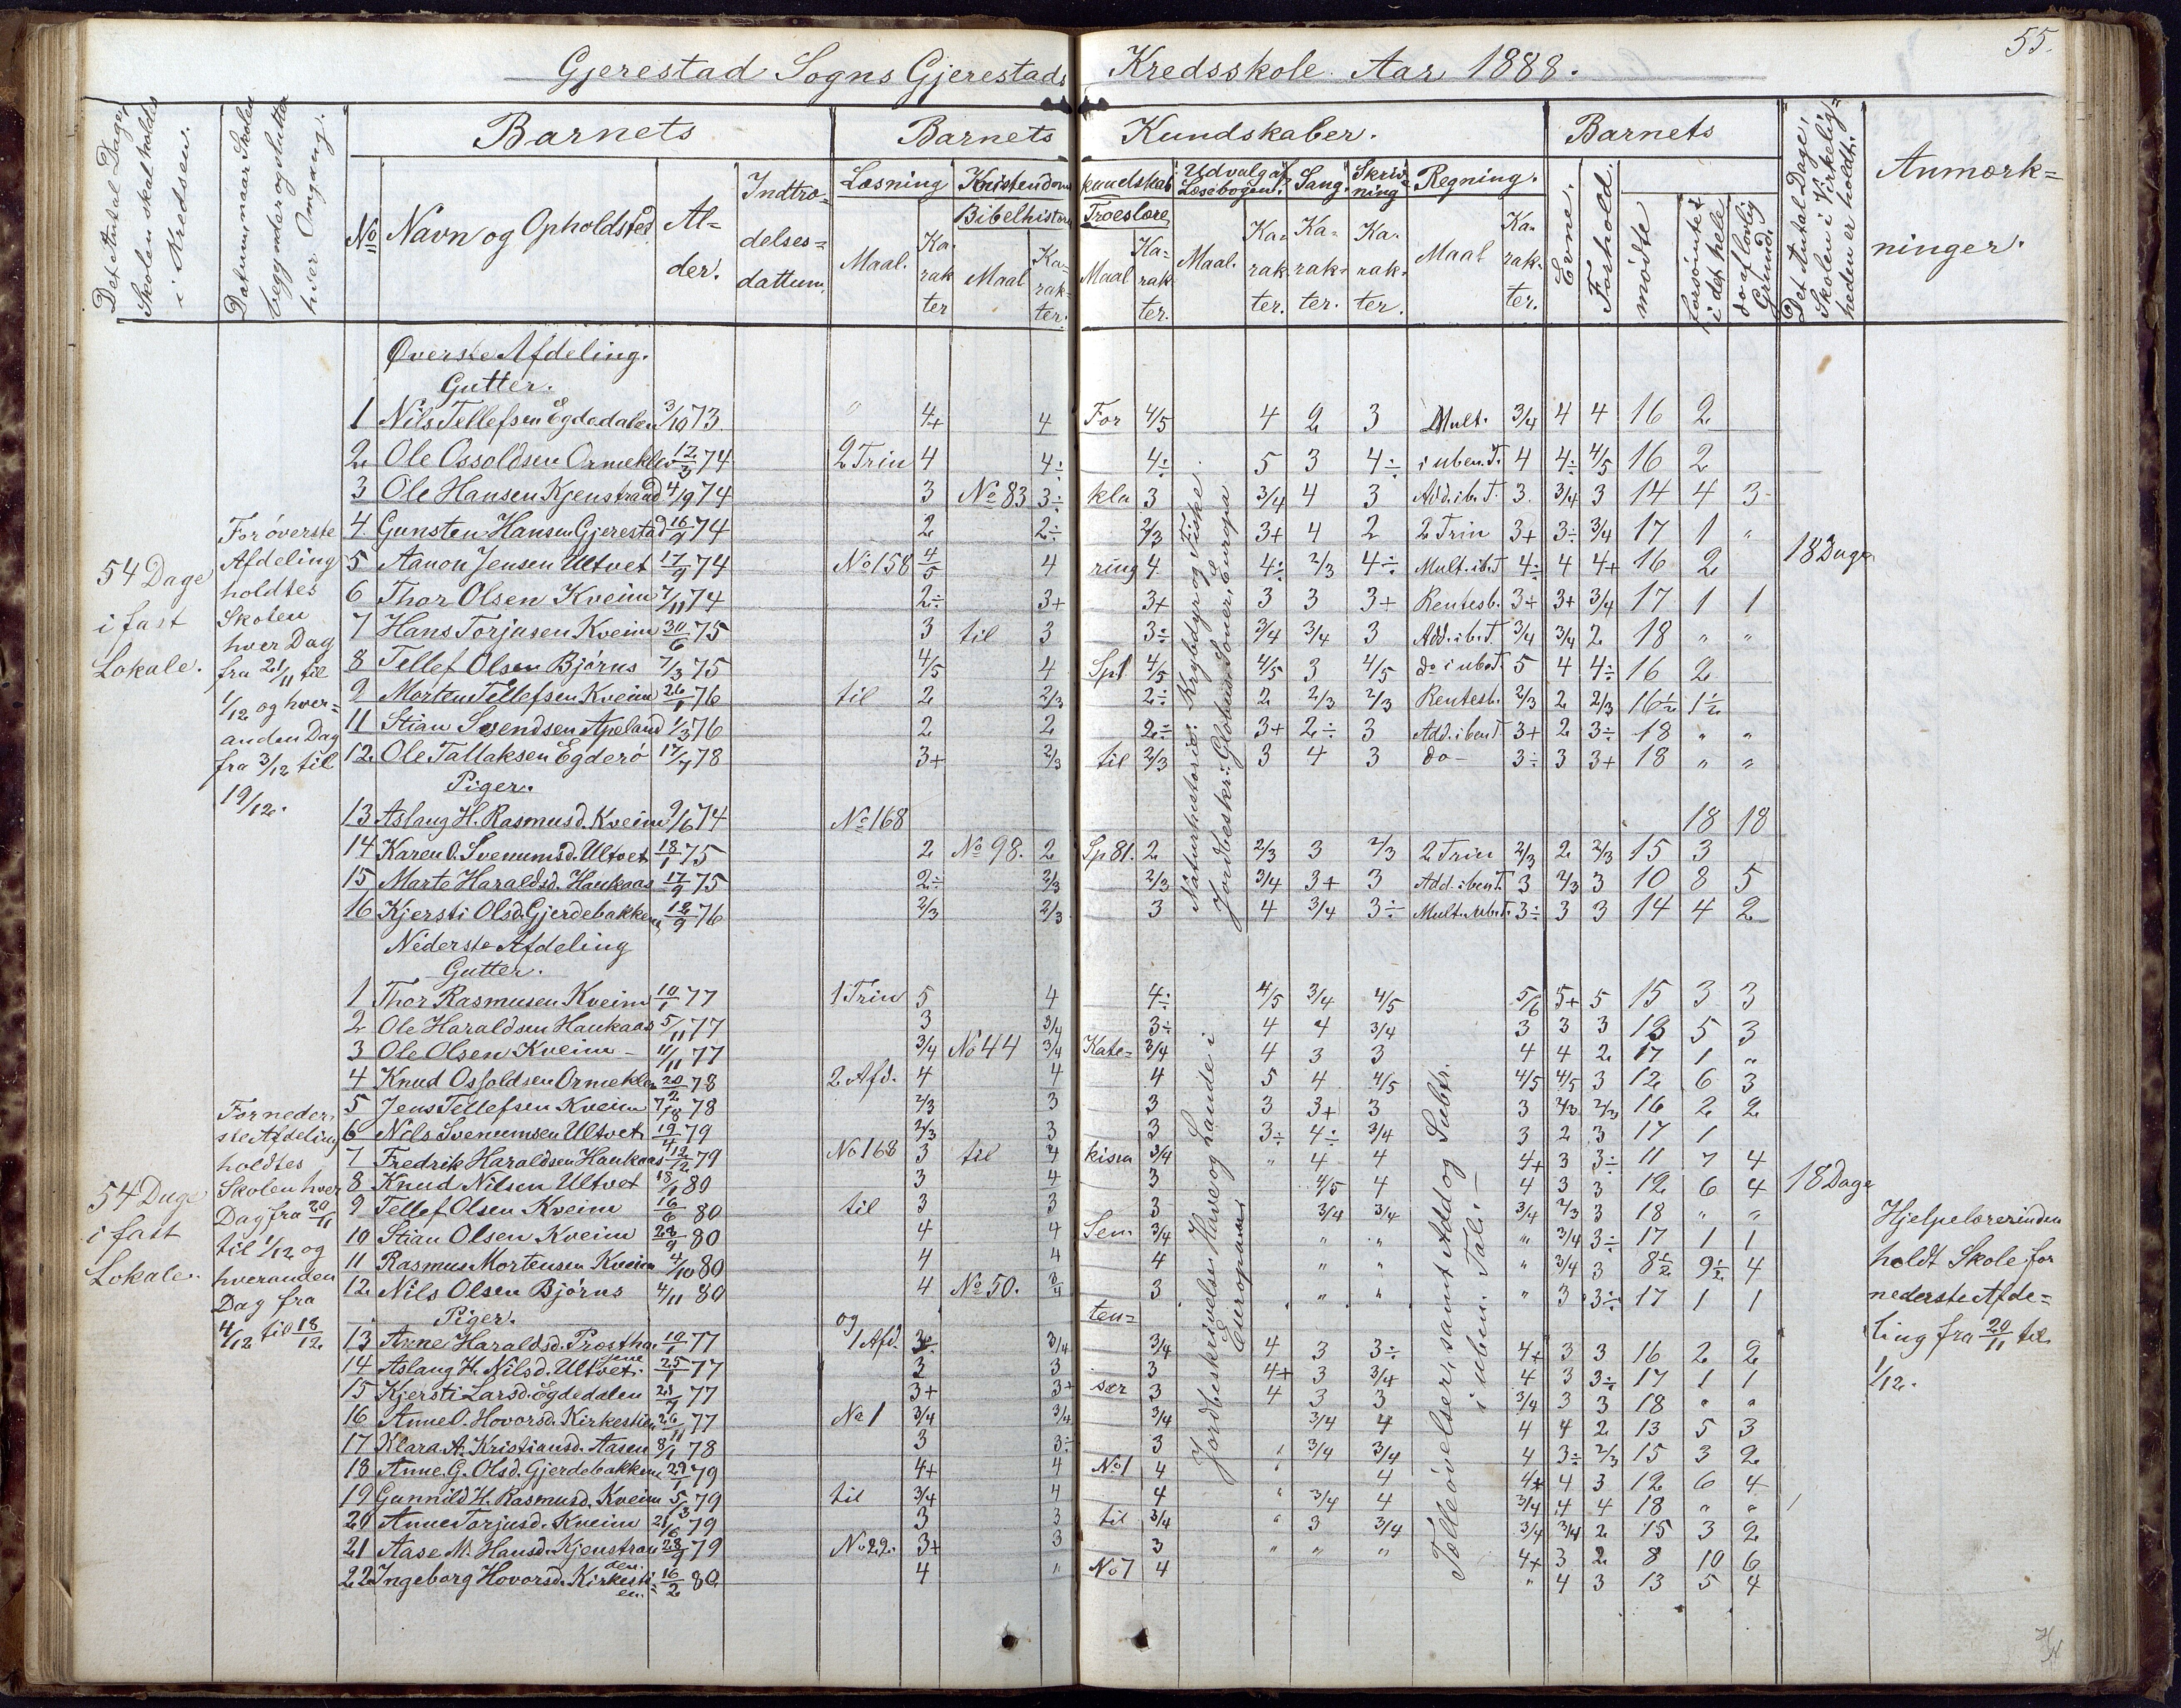 55.
Gjerestad Sogns Gjerestads Kredsskole Aar 1888.
Det Antal Dage, Skolen skal holdes i Kredsen.
Datum, naar Skolen begynder og slutter hver Omgang.
Barnets
No
Navn og Opholdsted
Alder.
Indtrædelsesdattum.
Barnets Kundskaber.
Læsning
Maal.
Karakter
Kristendomskundskab
Bibelhistorie
Maal
Karakter.
Troeslære
Maal
Karakter.
Udvalg af Læsebogen.
Maal.
Karakter.
Sang.
Karakter.
Skrivning
Karakter.
Regning.
Maal
Karakter.
Barnets
Evne.
Forhold.
mødte
forsømte i det hele
do af lovlig Grund.
Det Antal Dage, Skolen i Virkeligheden er holdt.
Anmærkninger.
Øverste Afdeling.
Gutter.
1 Nils Tellefsen Egdedalen 3/10 73. " 4+ 4 For 4/5 4 2 3 Mult. 3/4 4 4 16 2
2 Ole Ossoldsen Ormeklev 12/3 74 2 Trin 4 4÷ 4÷ 5 3 4÷ i uben. T. 4 4÷ 4/5 16 2
3 Ole Hansen Kjenstraad 4/9 74 3 No 83 3÷ kla 3 3/4 4 3 Add. i b. T. 3. 3/4 3 14 4 3
4 Gunsten Hansen Gjerestad 16/9 74 2 2÷ 2/3 3+ 4 2 2 Trin 3+ 3÷ 3/4 17 1 "
5 Aanon Jensen Ultvet 17/9 74 No 158 4/5 4 ring 4 4÷ 2/3 4÷ Mult. i b. T 4÷ 4 4+ 16 2
6 Thor Olsen Kveim 7/11 74 2÷ 3+ 3+ 3 3 3+ Rentesb. 3+ 3+ 3/4 17 1 1
7 Hans Torjusen Kveim 30/6 75 3 til 3 3÷ 3/4 3/4 3 Add. i b. T. 3/4 3/4 2 18 " "
8 Tellef Olsen Bjórns 7/3 75 4/5 4 Sp1 4/5 4/5 3 4/5 do i ub. T. 5 4 4÷ 16 2
9 Morten Tellefsen Kveim 26/1 76 til 2 2/3 2÷ 2 2/3 2/3 Rentesb. 2/3 2 2/3 16½ 1½
11 Stian Svendsen Apeland 1/3 76 2 2 2÷ 3+ 2÷ 3 Add. i ben T 3+ 2 3÷ 18 " "
12 Ole Tallaksen Egderö 17/7 78 3+ 2/3 til 2/3 3 4 3 do - 3÷ 3 3+ 18 " "
Piger.
13 Aslaug H. Rasmusd. Kveim 9/6 74 No 168 18 18
14 Karen O. Svenumsd. Ultvet 18/1 75 2 No 98. 2 Sp 81. 2 2/3 3 2/3 2 Trin 2/3 2 2/3 15 3
15 Marte Haraldsd. Haukaas 17/9 75 2÷ 2/3 2/3 3/4 3+ 3 Add. i ben T. 3 2/3 3 10 8 5
16 Kjersti Olsd. Gjerdebakken 12/9 76 2/3 2/3 3 4 3/4 3÷ Mult. i ub. T. 3÷ 3 3 14 4 2
54 Dage i fast Lokale.
For överste Afdeling holdtes Skolen hver Dag fra 21/11 til 1/12 og hveranden Dag fra 3/12 til 19/12.
Naturhistorie: Krybdyr og Fiske
Jordbeskr.: Globus, Soner, Europa
18 Dage
Nederste Afdeling
Gutter.
1 Thor Rasmusen Kveim 10/1 77 1 Trin 5 4 4÷ 4/5 3/4 4/5 5/6 5+ 5 15 3 3
2 Ole Haraldsen Haukaas 5/11 77 3 3/4 3÷ 4 4 3/4 3 3 3 13 5 3
3 Ole Olsen Kveim - 11/11 77 3/4 No 44 3/4 Kate= 3/4 4 3 3 4 4 2 17 1 "
4 Knud Ossoldsen Ormeklev 20/2 78 2 Afd. 4 4 4 5 4 4/5 4/5 4/5 3 12 6 3
5 Jens Tellefsen Kveim 7/18 78 2/3 3 3 3 3+ 3 3 2/3 2/3 16 2 2
6 Nils Svenumsen Ultvet 19/4 79 2/3 3 3 3÷ 4÷ 3/4 3 2 3 17 1
7 Fredrik Haraldsen Haukaas 12/12 79 No 168 3 til 4 kisma 3/4 " 4 4 4+ 3 3÷ 11 7 4
8 Knud Nilsen Ultvet 18/1 80 3 4 3 4/5 4 4 3 3 12 6 4
9 Tellef Olsen Kveim 16/6 80 til 3 3 3 3/4 3/4 3/4 2/3 3 18 " "
10 Stian Olsen Kveim 28/9 80 4 4 Sen= 3/4 " " " 3/4 3÷ 17 1 1
11 Rasmus Mortensen Kveim 4/10 80 4 4 4 " " " 3/4 3 8½ 9½ 4
12 Nils Olsen Bjórns 4/11 80 4 No 50. 3/4 3 " " " 3 3÷ 17 1 1
Piger. og ten=
13 Anne Haraldsd. Prosthaugene 19/1 77 1 Afd. 3÷ 3/4 3/4 4 3 3÷ 4+ 3 3 16 2 2
14 Aslaug H. Nilsd. Ultvet. 25/1 77 3 3 3 4+ 3 3/4 4 3 3÷ 17 1 1
15 Kjersti Larsd. Egdedalen 21/7 77 3+ 3+ ser 3 4 3 3 3/4 3 3 18 " "
16 Anne O. Hovorsd. Kirkestien 26/11 77 No 1 3/4 3/4 3/4 3/4 4 4 4 2 13 5 3
17 Klara A. Kristiansd. Aasen 8/1 78 3 3÷ 3 " 3/4 3/4 4 3÷ 2/3 15 3 2
18 Anne. G. Olsd. Gjerdebakken 29/1 79 4+ 4 No 1 4 " 4 4+ 4 3 12 6 4
19 Gunnild H. Rasmusd. Kveim 5/3 79 til 3/4 4 4 " 3/4 4 3/4 4 4 18 " "
20 Anne Torjusd. Kveim 21/6 79 3 3 til 3/4 " 3 3/4 3/4 3/4 2 15 3 2
21 Aase M. Hansd. Kjenstraaden 28/9 79 No 22. 3+ 3 3 " " " 4+ 3 2 8 10 6
22 Ingeborg Hovorsd. Kirkestien. 16/2 80 4 " No 7 4 " 4 3 13 5 4
54 Dage i fast Lokale.
For nederste Afdeling holdtes Skolen hver Dag fra 20/11 til 1/12 og hveranden Dag fra 4/12 til 18/12
Jordbeskrivelse: Have og Lande i Europa
Tælleövelser, samt Add og Subtr. i uben. Tal.
18 Dage
Hjelpelærerinden holdt Skole for nederste Afdeling fra 20/11 til 1/12.